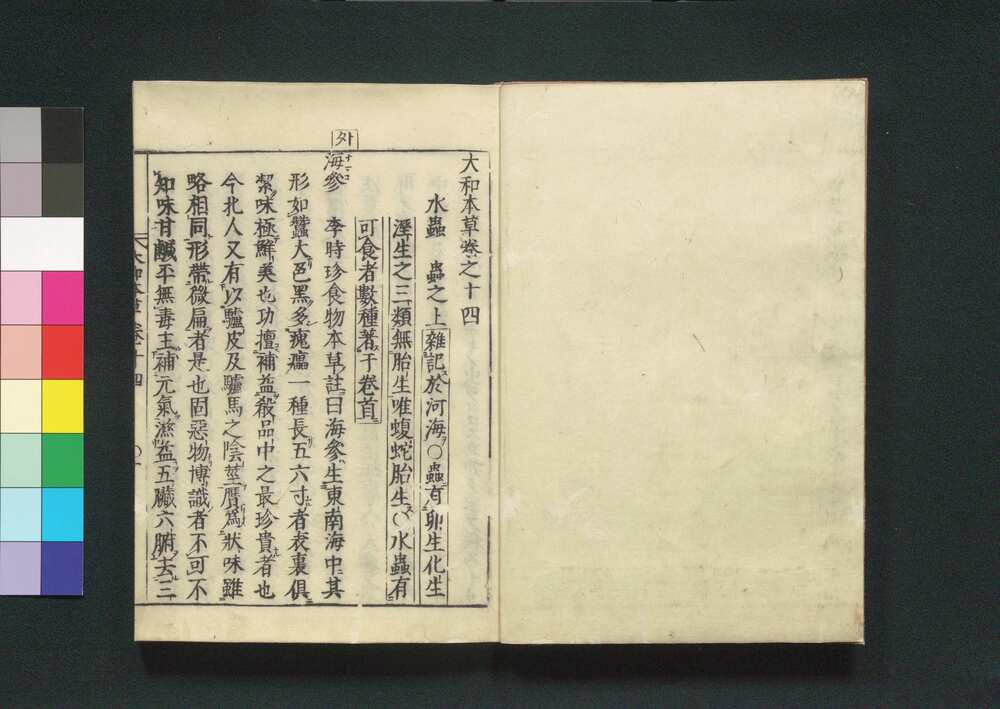 大和本草卷之十四
水蟲　蟲之上
雜記於河海〇蟲有卵生化生
溼生之三類無胎生唯蝮蛇胎生〇水蟲有
可食者數種著于卷首
外
海參　李時珍食物本草註曰海參生東南海中其
形如蠶大色黑多瘣癗一種長五六寸者表裏俱
絜味極鮮美也功擅補益殽品中之最珍貴者也
今北人又有以驢皮及驢馬之陰莖贋爲狀味雖
略相同形帶微扁者是也固惡物博識者不可不
知味甘鹹平無毒主補元氣滋益五臟六腑去三
大和本草卷十四